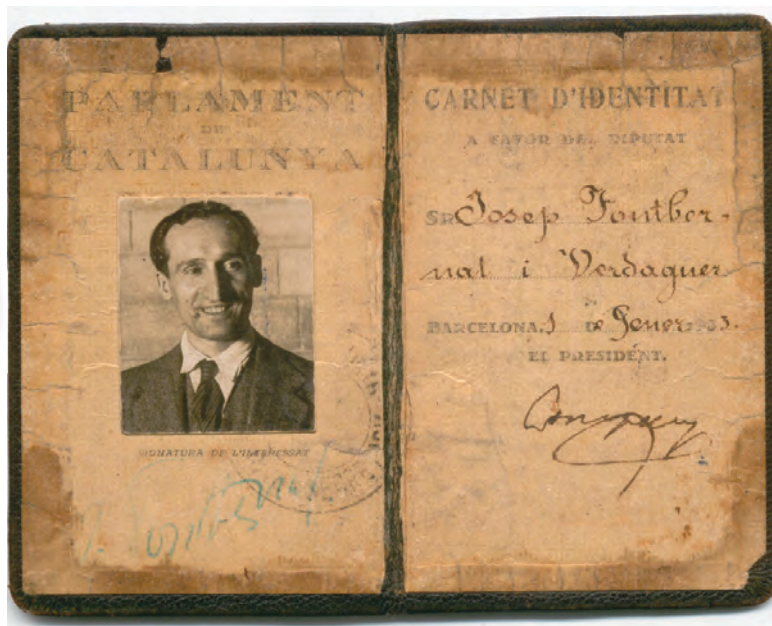 PARLAMENT
DE
CATALUNYA
SIGNATURA DE L'INTERESSAT
CARNET D'IDENTITAT
A FAVOR DEL DIPUTAT
SR Josep Fontber-
nat i Verdaguer
BARCELONA, 1 DE Gener 1933.
EL PRESIDENT.
Companys